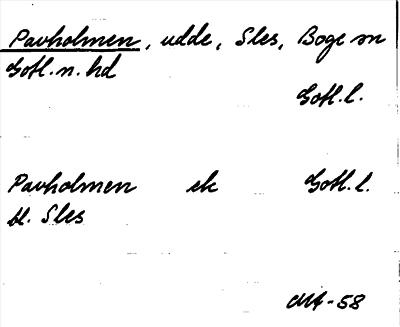 Pavholmen, udde, Sles, Boge sn
Gotl. n. hd
Gotl. l.
Pavholmen ek Gotl. l.
bl. Sles
-58